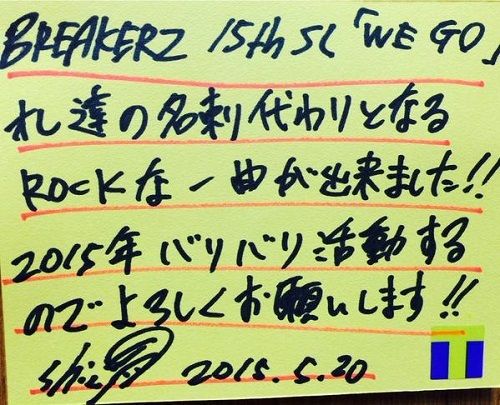 BREAKERZ 15th SC「WE GO」
れ達の名刺代わりとなる
ROCKな一曲が出来ました!!
2015年バリバリ活動する
のでよろしくお願いします!!
2015.5.20